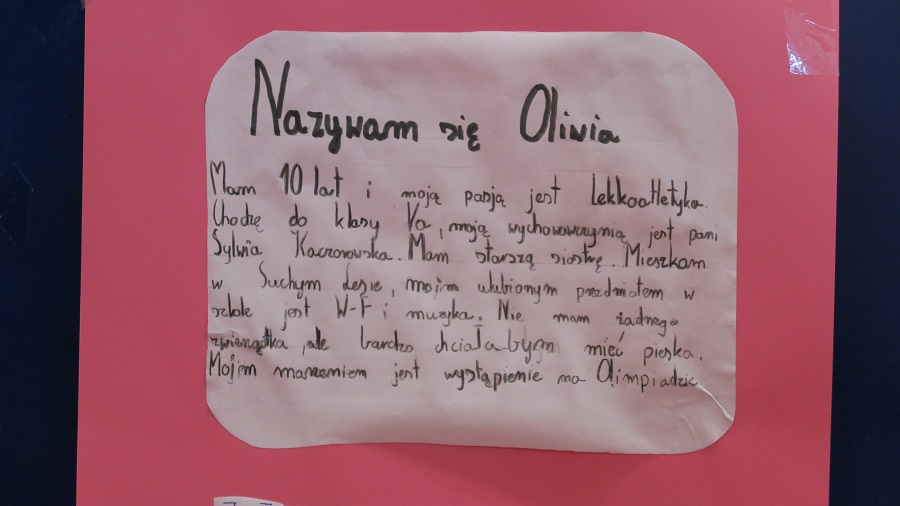 Nazywam się Oliwia
Mam 10 lat i moją pasją jest Lekkoatletyka.
Chodzę do klasy Va, moją wychowawczynią jest pani
Sylwia Kaczorowska. Mam starszą siostrę. Mieszkam
w Suchym Lesie, mojim ulubionym przedmiotem w
szkole jest W-F i muzyka. Nie mam żadnego
zwierzątka, ale bardzo chciałabym mieć pieska.
Mojim marzeniem jest wystąpienie na Olimpiadzie